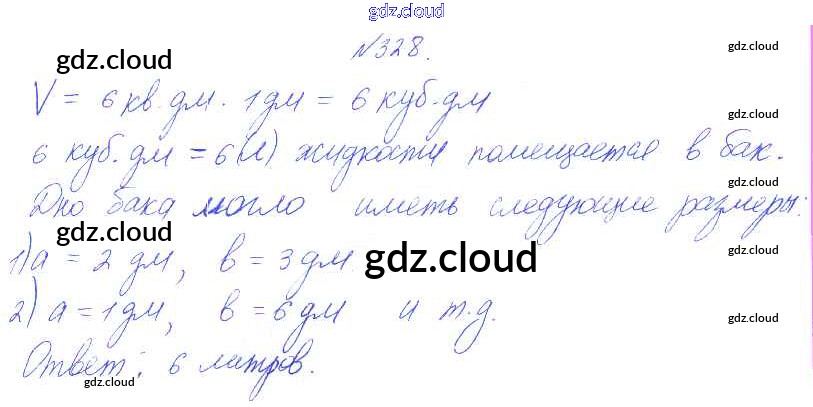 gdz.cloud
№328.
gdz.cloud gdz.cloud
V = 6 кв. дм. · 1 дм = 6 куб. дм
gdz.cloud
6 куб. дм = 6 (л) жидкости помещается в бак.
gdz.cloud
Дно бака могло иметь следующие размеры:
gdz.cloud gdz.cloud
1) a = 2 дм, в = 3 дм gdz.cloud
2) a = 1 дм, в = 6 дм и т.д.
gdz.cloud
Ответ: 6 литров.
gdz.cloud gdz.cloud